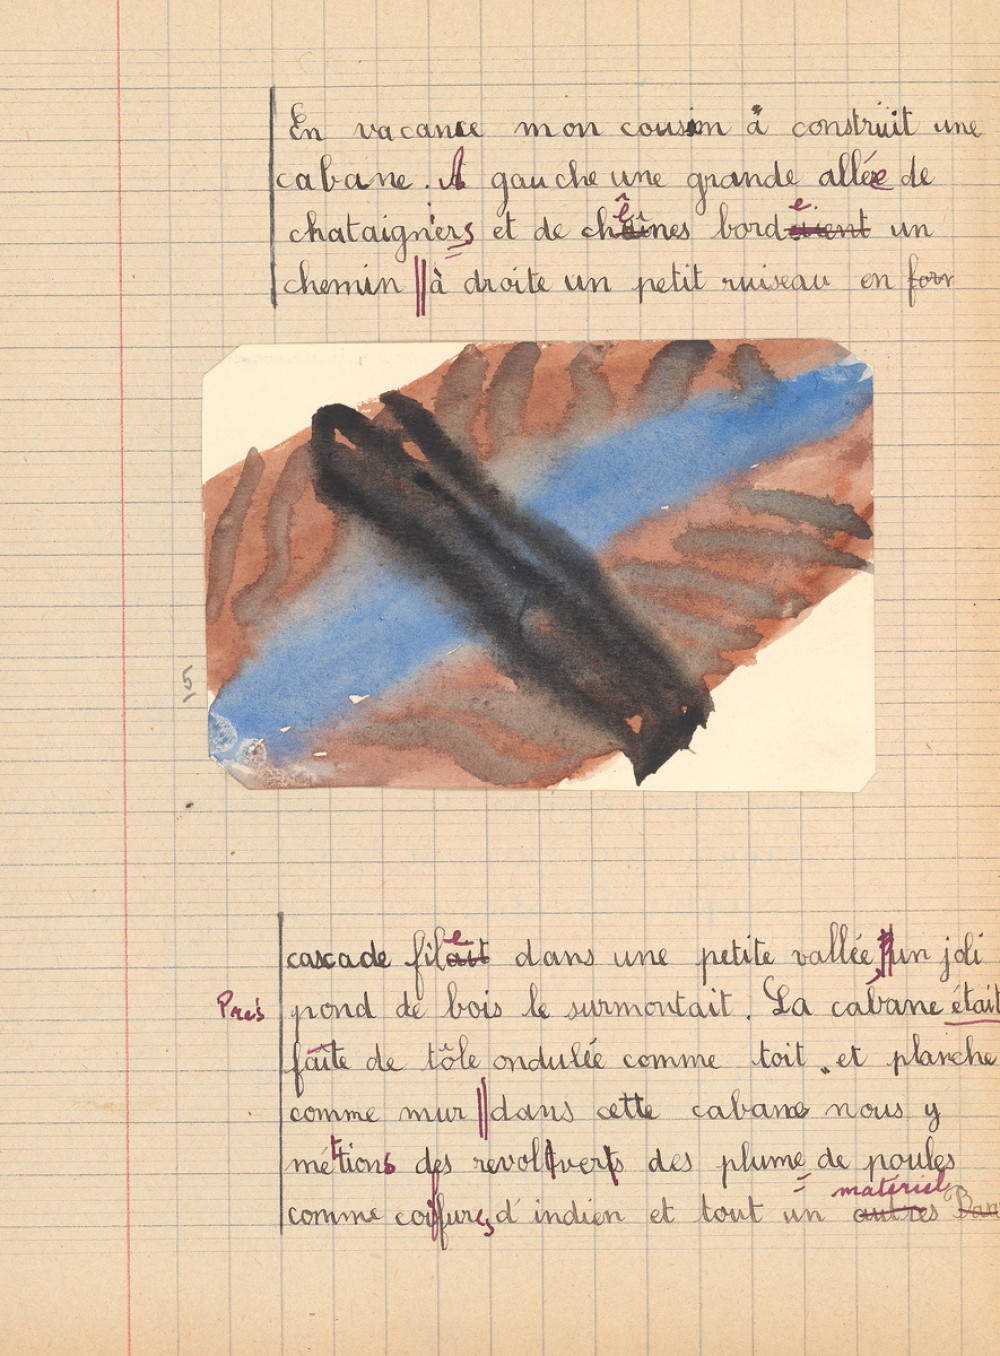 En vacance mon cousin à construit une
cabane. A gauche une grande allée de
chataigniers et de chênes borde un
chemin || à droite un petit ruiseau en form
5
cascade file dans une petite vallée un joli
Près pond de bois le surmontait. La cabane était
faîte de tôle ondulée comme toit. et planche
comme mur || dans cette cabane nous y
mettions des revolvers des plume de poules
matériel
comme coiffures d'indien et tout un autres